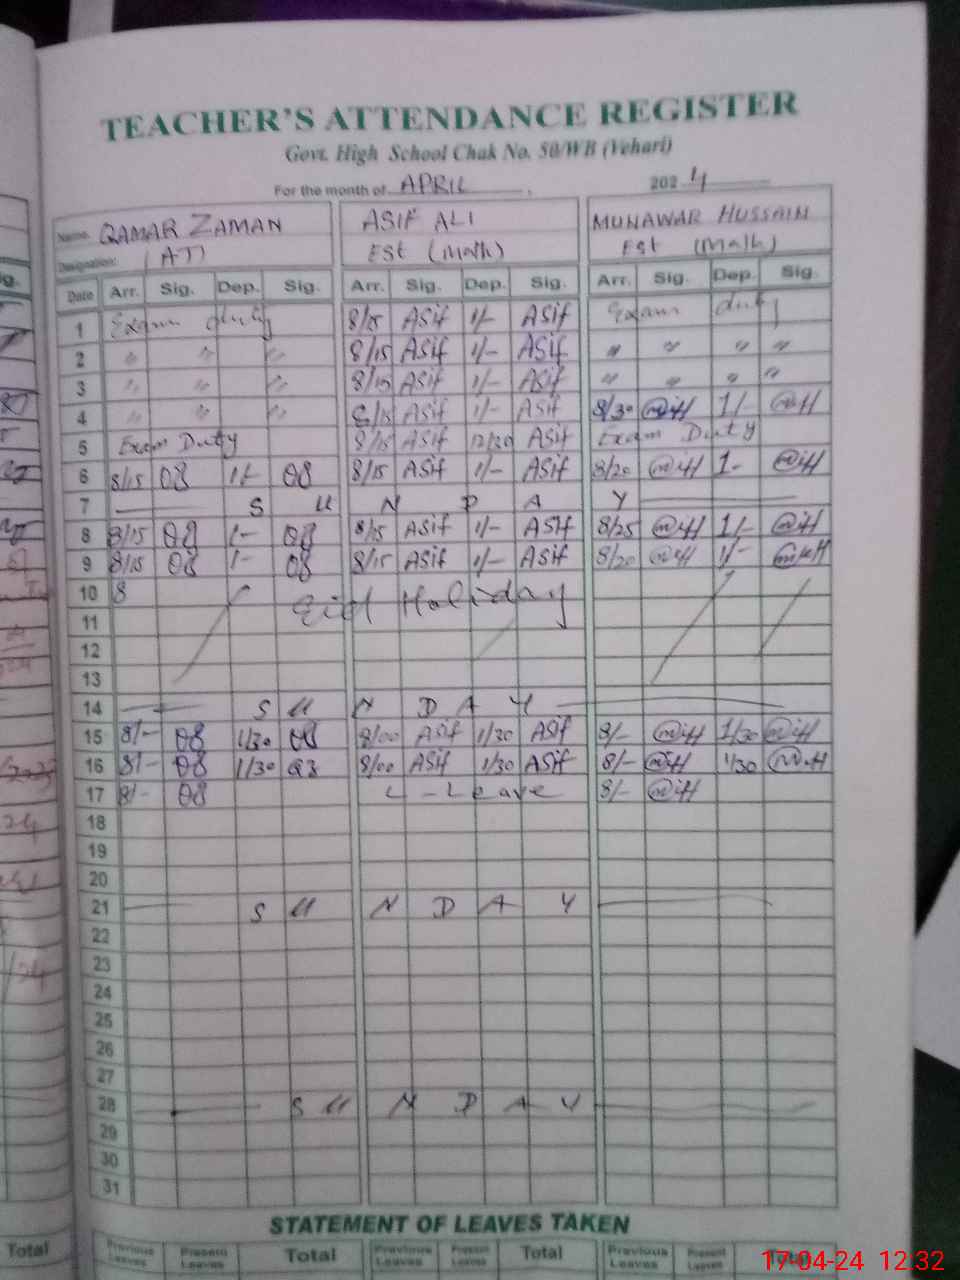 TEACHER'S ATTENDANCE REGISTER
Govt. High School Chak No. 50/WB (Vehari)
For the month of APRIL 2024
Name. QAMAR ZAMAN ASIF ALI MUNAWAR HUSSAIN
Designation: (AT) EST (Math) EST (Math)
Date Arr. Sig. Dep. Sig. Arr. Sig. Dep. Sig. Arr. Sig. Dep. Sig.
1 Exam duty 8/15 ASif 1/- ASif Exam duty
2 " " " 8/15 ASif 1/- ASif " " " "
3 " " " 8/15 ASif 1/- ASif " " " "
4 " " " 8/15 ASif 1/- ASif 8/30 1/-
5 Exam Duty 8/15 ASif 12/30 ASif Exam Duty
6 8/15 08 1/- 08 8/15 ASif 1/- ASif 8/20 1-
7 S U N D A Y
8 8/15 08 1- 08 8/15 ASif 1/- ASif 8/25 1/-
9 8/15 08 1- 08 8/15 ASif 1/- ASif 8/20 1/-
10 8 Eid Holiday
11
12
13
14 S U N D A Y
15 8/- 08 1/30 08 8/00 Asif 1/30 ASif 8/- 1/30
16 8/- 08 1/30 08 8/00 ASif 1/30 ASif 8/- 1/30
17 8/- 08 L-Leave 8/-
18
19
20
21 S U N D A Y
22
23
24
25
26
27
28 S U N D A Y
29
30
31
STATEMENT OF LEAVES TAKEN
Total Previous Leaves Present Leaves Total Previous Leaves Present Leaves Total Previous Leaves Present Leaves Total
17-04-24 12:32